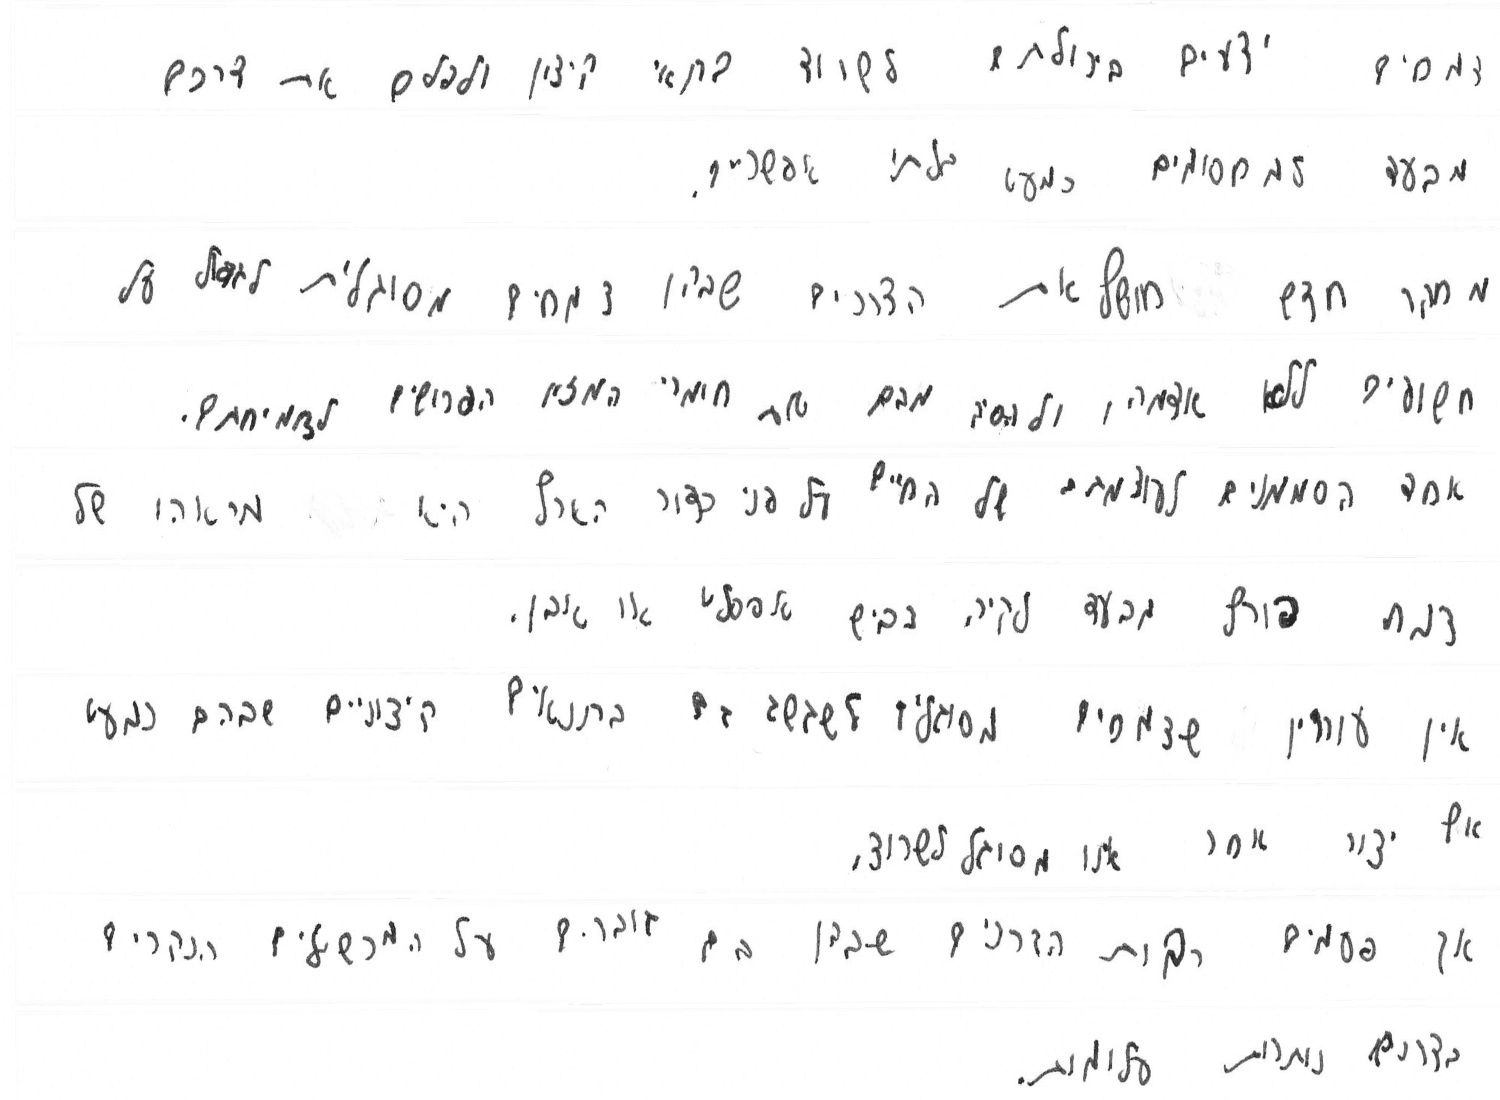 צמחים ידעים ביכולתם לשרוד בתנאי קיצון ולפלס את דרכם
מבעד למחסומים כמעט בלתי אפשריים.
מחקר חדש חושף את הדרכים שבהן צמחים מסוגלית לגדול על
חשופים ללא אדמה, ולהסיג מבם את חומרי המזא הפרושים לצמיחתם.
אחד הסממנים לעוצמתם של החיים על פני כדור הארץ היא מראהו של
צמח פורץ מבעד לקיר, כביש אספלט או אבן.
אין עוררין שצמחים מסוגלים לשגשג גם בתנאים קיצוניים שבהם כמעט
אף יצור אחר אינו מסוגל לשרוד,
אך פעמים רבות הדרכים שבהן הם גוברים על המכשולים הנקרים
בדרכם נותרות עלומות.